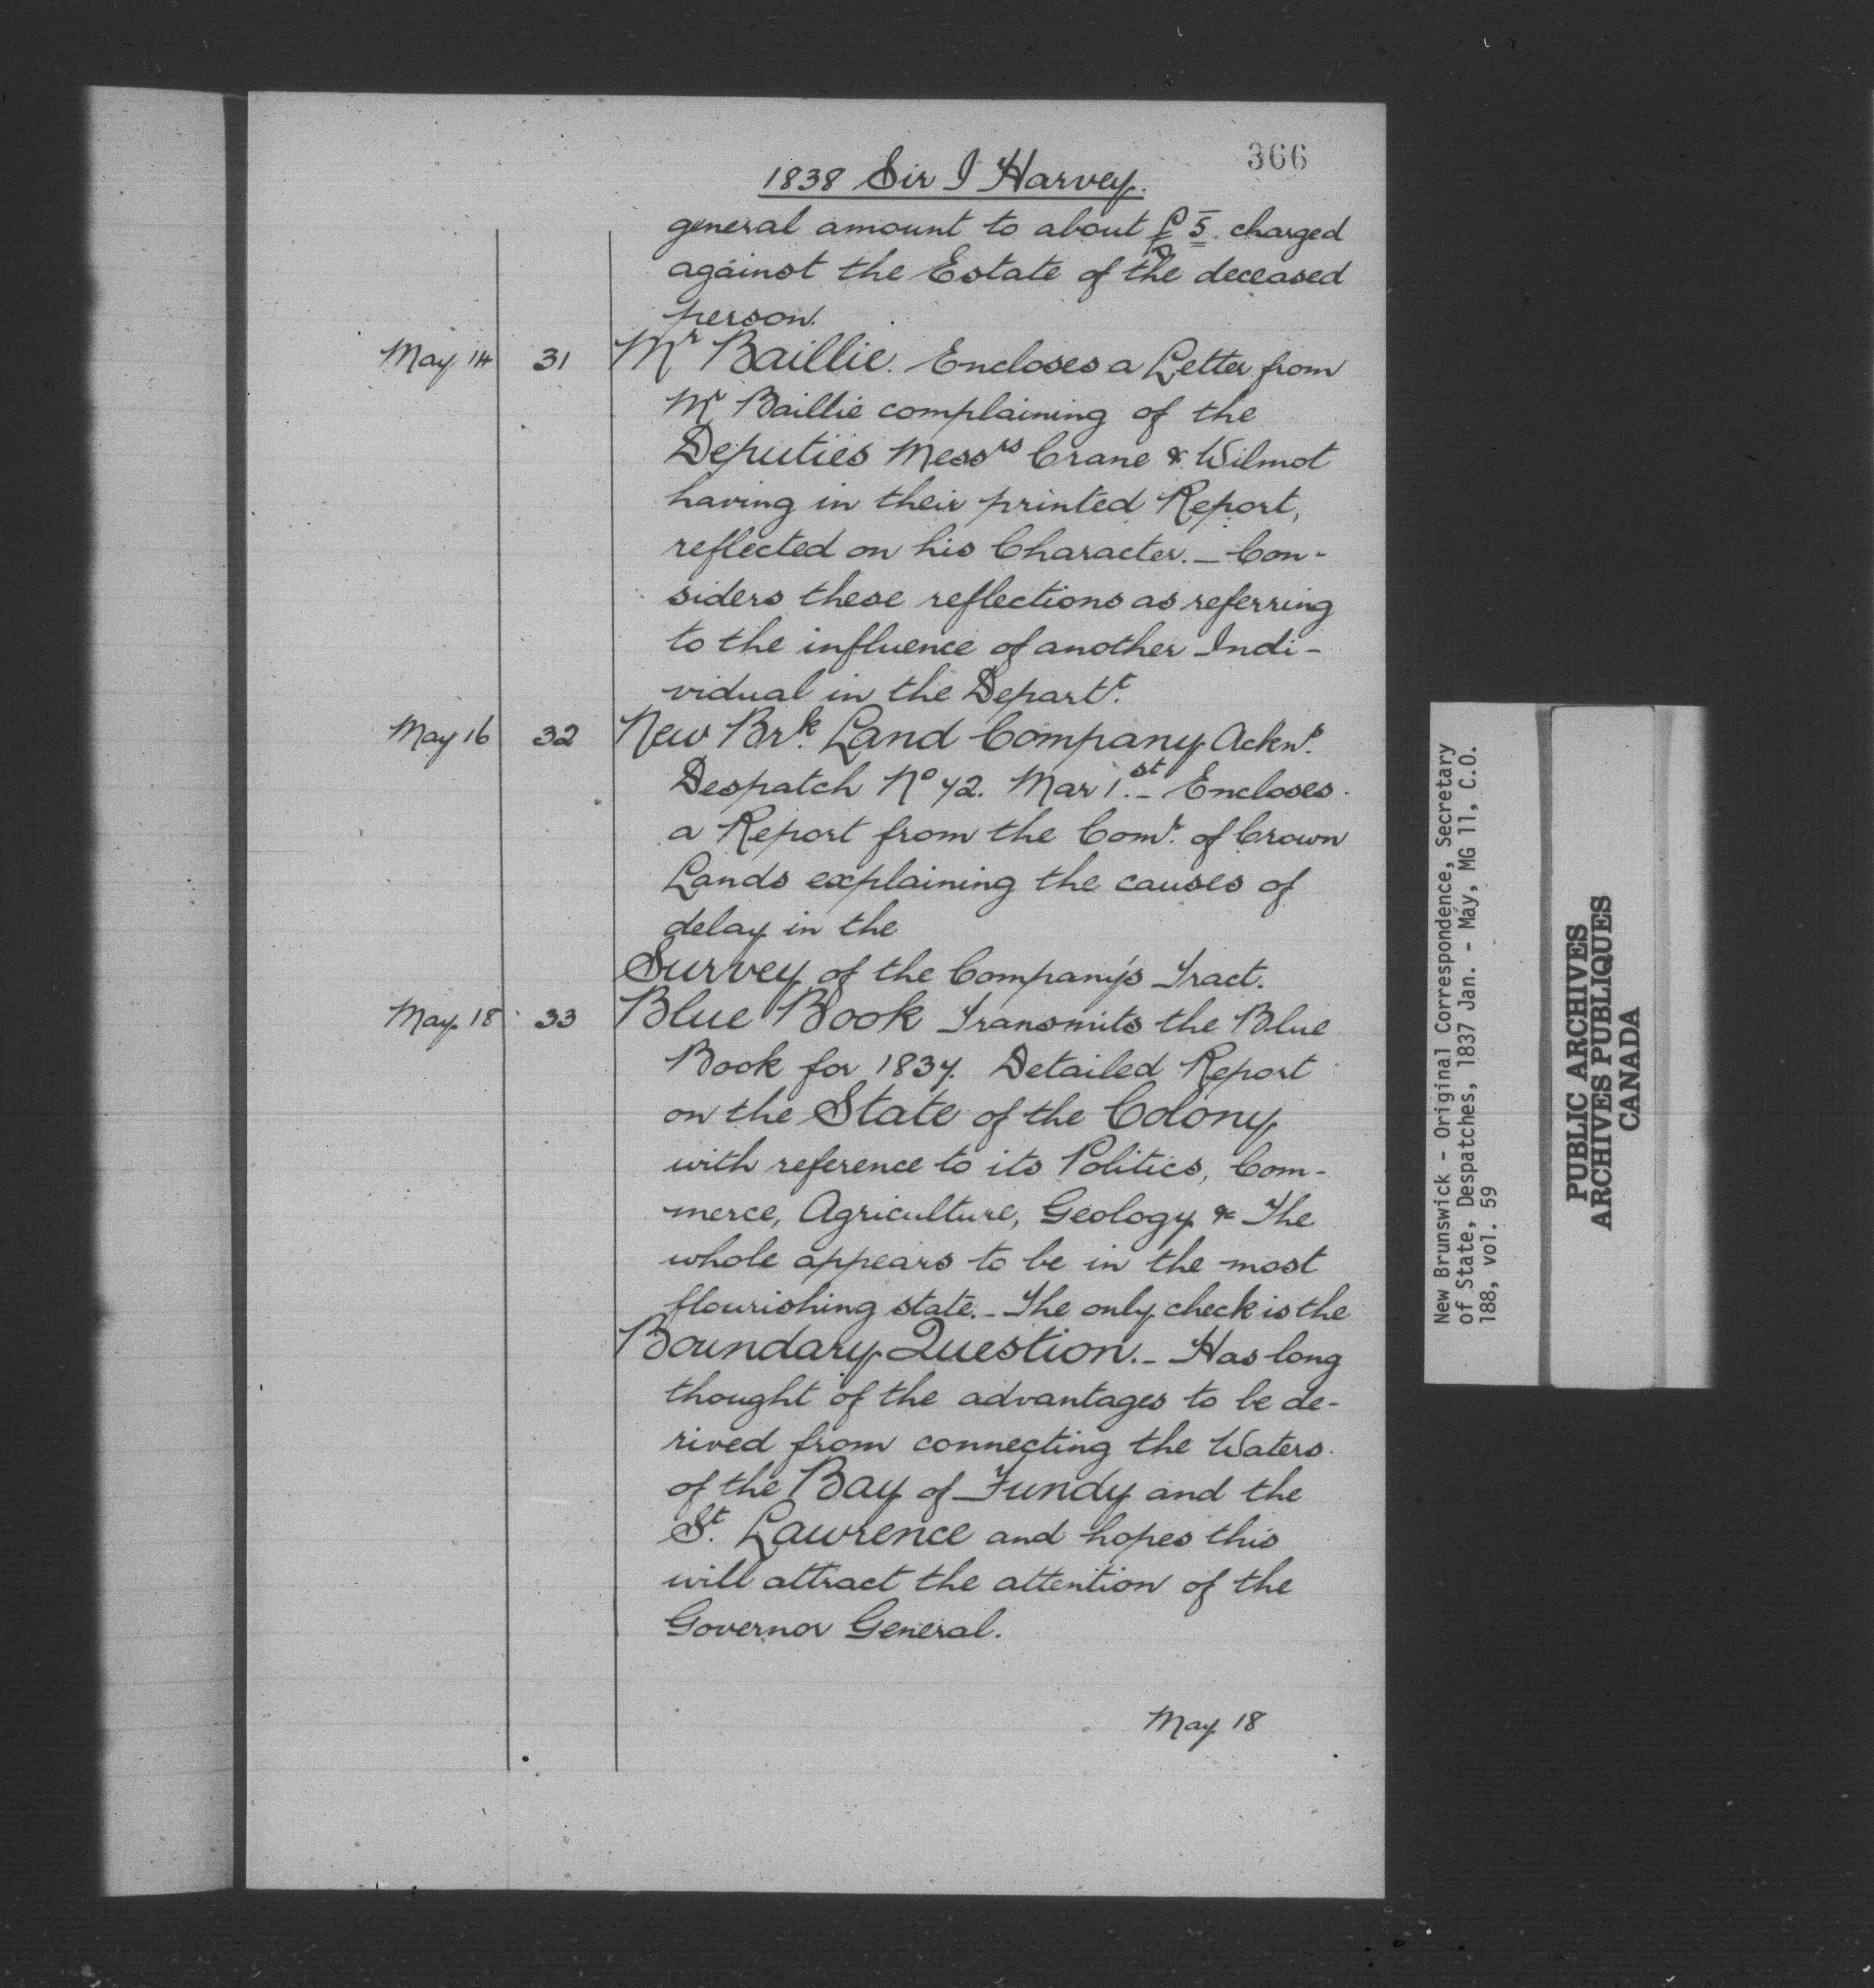 366
1838 Sir J Harvey.
general amount to about £5. charged
against the Estate of the deceased
person.
May 14 31 Mr Baillie. Encloses a Letter from
Mr Baillie complaining of the
Deputies Messrs Crane & Wilmot
having in their printed Report,
reflected on his Character. — Con-
siders these reflections as referring
to the influence of another Indi-
vidual in the Departt.
May 16 32 New Brk. Land Company Ackns.
Despatch No 72. Mar 1.st — Encloses
a Report from the Comr. of Crown
Lands explaining the causes of
delay in the
Survey of the Company's Tract.
May 18 33 Blue Book Transmits the Blue
Book for 1837. Detailed Report
on the State of the Colony
with reference to its Politics, Com-
merce, Agriculture, Geology & The
whole appears to be in the most
flourishing state. – The only check is the
Boundary Question. – Has long
thought of the advantages to be de-
rived from connecting the Waters
of the Bay of Fundy and the
St. Lawrence and hopes this
will attract the attention of the
Governor General.
May 18
New Brunswick - Original Correspondence, Secretary
of State, Despatches, 1837 Jan. - May, MG 11, C.O.
188, vol. 59
PUBLIC ARCHIVES
ARCHIVES PUBLIQUES
CANADA